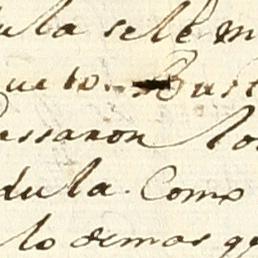 ula sele m
ueto. Gust
essaron lo
dula. Como
lo demas q